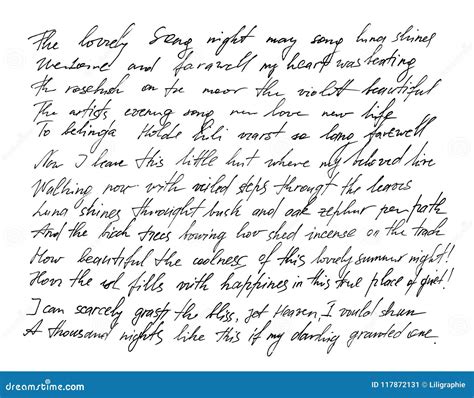 The lovely Song night may song luna shines
Welcome and farewell my heart was beating
the rosebush on the moor the violet beautiful
The artists evening song new love new life
To belinda Holde Lili warst so lang farewell
Now I leave this little hut where my beloved live
Walking now with veiled steps throught the leaves
Luna shines throught bush and oak zephur per path
And the birch trees bowing low shed incense on the track
How beautiful the coolness of this lovely summer night!
How the soul fills with happiness in this true place of quiet!
I can scarcely grasp the bliss, yet Heaven, I would shun
A thousand nights like this if my darling granted one.
dreamstime.com
ID 117872131 © Liligraphie